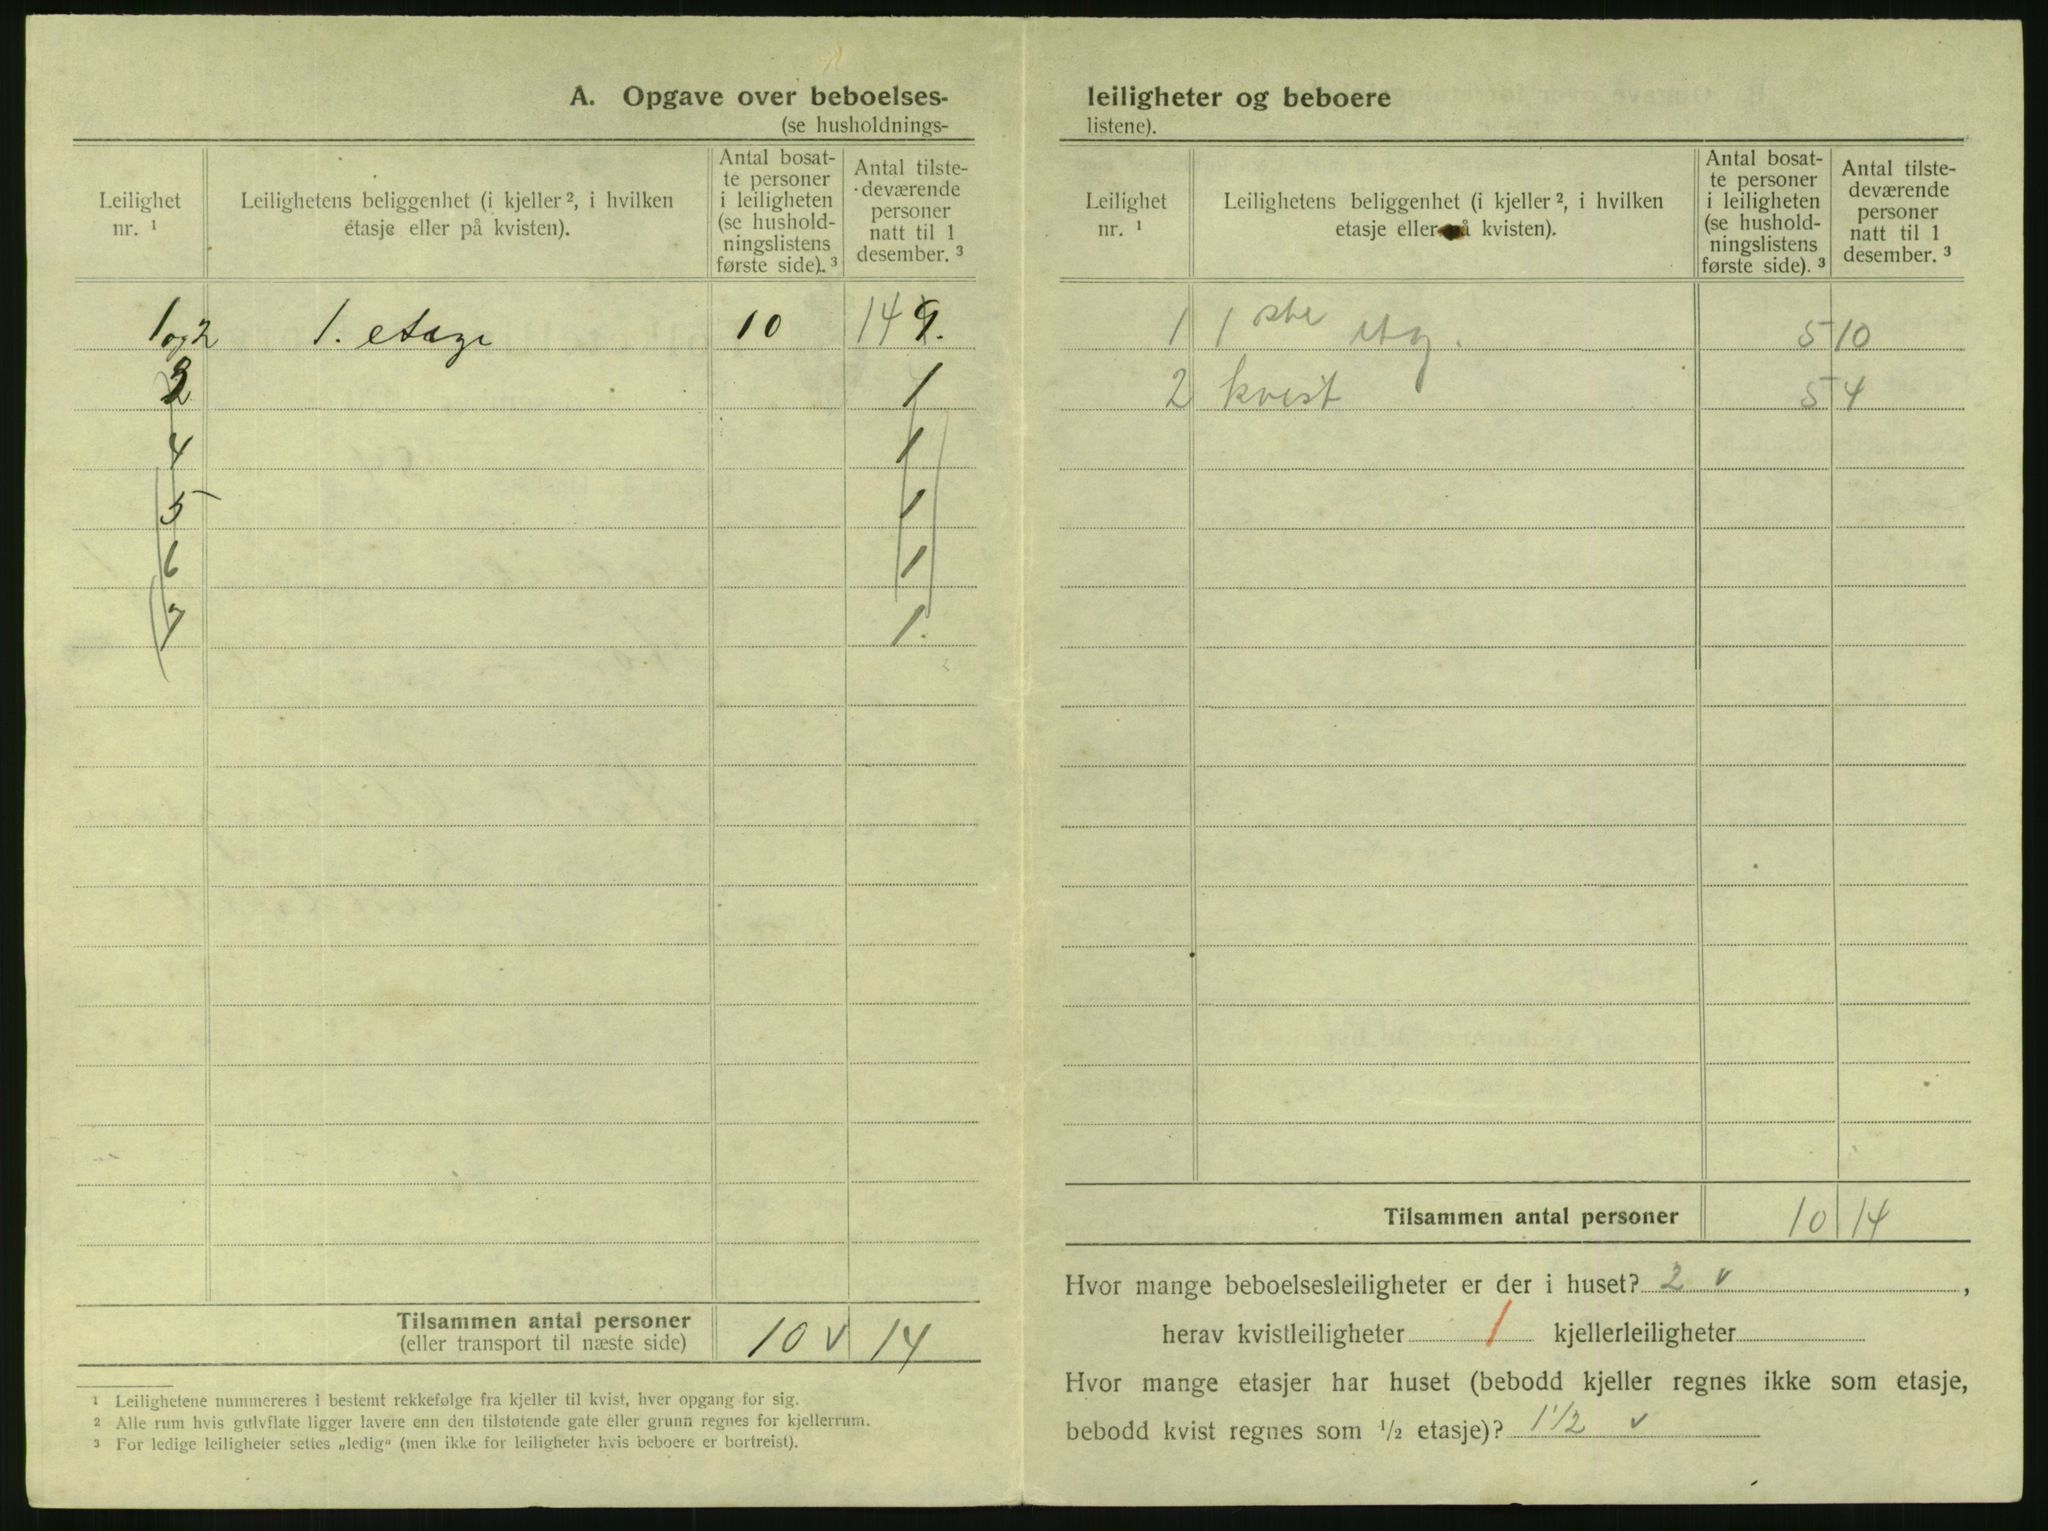 A. Opgave over beboelses-
(se husholdnings-
Leilighet
nr. ¹
Leilighetens beliggenhet (i kjeller ², i hvilken
etasje eller på kvisten).
Antal bosat-
te personer
i leiligheten
(se hushold-
ningslistens
første side). ³
Antal tilste-
deværende
personer
natt til 1
desember. ³
1 og 2 1. etage 10 14 9.
3 1
4 1
5 1
6 1
7 1.
Tilsammen antal personer
(eller transport til næste side) 10 v 14
¹ Leilighetene nummereres i bestemt rekkefølge fra kjeller til kvist, hver opgang for sig.
² Alle rum hvis gulvflate ligger lavere enn den tilstøtende gate eller grunn regnes for kjellerrum.
³ For ledige leiligheter settes „ledig“ (men ikke for leiligheter hvis beboere er bortreist).
leiligheter og beboere
listene).
Leilighet
nr. ¹
Leilighetens beliggenhet (i kjeller ², i hvilken
etasje eller på kvisten).
Antal bosat-
te personer
i leiligheten
(se hushold-
ningslistens
første side). ³
Antal tilste-
deværende
personer
natt til 1
desember. ³
1 1ste etg. 5 10
2 kvist 5 4
Tilsammen antal personer 10 14
Hvor mange beboelsesleiligheter er der i huset? 2 v ,
herav kvistleiligheter 1 kjellerleiligheter
Hvor mange etasjer har huset (bebodd kjeller regnes ikke som etasje,
bebodd kvist regnes som ½ etasje)? 1 1/2 v